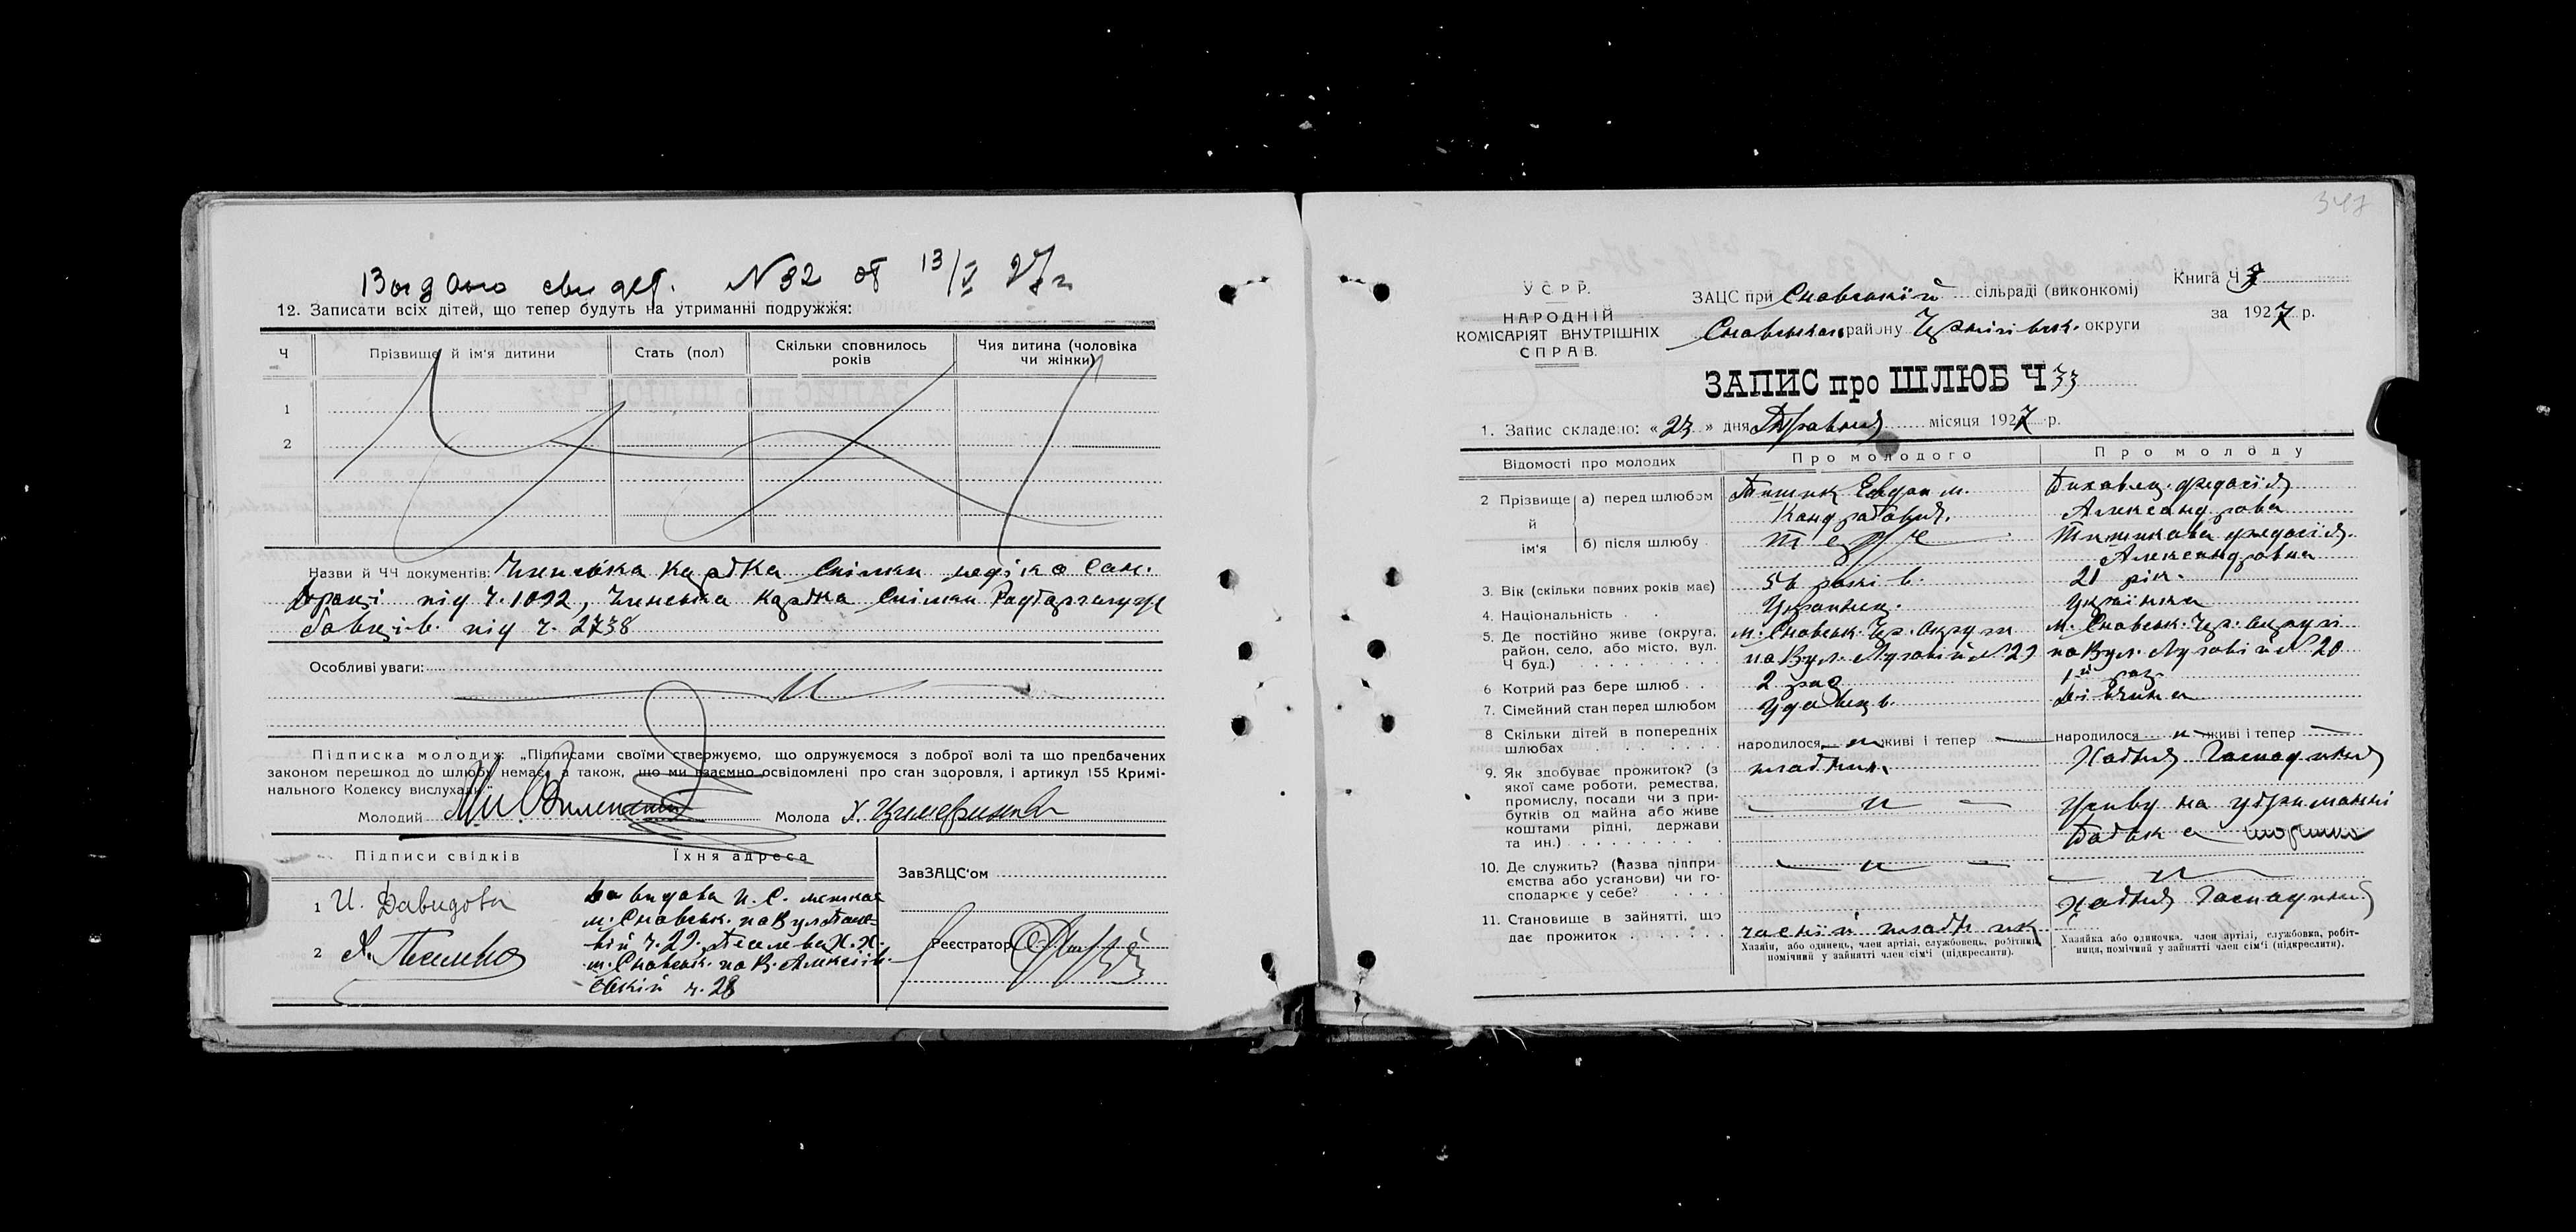 Выдано свидет. N 32 от 13/V 27 г
12. Записати всіх дітей, що тепер будуть на утриманні подружжя:
Ч
Прізвище й ім'я дитини
Стать (пол)
Скільки сповнилось років
Чия дитина (чоловіка чи жінки)
1
2
Назви й ЧЧ документів: Членська картка Спілки медіко Сан.
Праці під ч. 1092, Членська картка Спілки
під ч. 2738
Особливі уваги:
Підписка молодих: „Підписами своїми стверджуємо, що одружуємося з доброї волі та що предбачених
законом перешкод до шлюбу немає, а також, що ми взаємно освідомлені про стан здоровля, і артикул 155 Кримі-
нального Кодексу вислухали".
Молодий
Молода
Підписи свідків
Їхня адреса
ЗавЗАЦС'ом
1 И. Давидова
Давидова И. С. мешкає
м. Сновськ. по Вул.
ч. 29.
2
м. Сновськ. по В. Алексіїв-
ській ч. 28
Реєстратор
347
У С Р Р.
НАРОДНІЙ
КОМІСАРІЯТ ВНУТРІШНІХ
СПРАВ.
ЗАЦС при Сновській сільраді (виконкомі)
Сновськом району Чернігівськ. округи
Книга Ч
за 1927 р.
ЗАПИС про ШЛЮБ Ч 33
1. Запис складено: «23» дня Травня місяця 1927 р.
Відомості про молодих
Про молодого
Про молоду
2 Прізвище й ім'я
а) перед шлюбом
Тищик Евдоким.
Кандратович.
Федосія
Александрова
б) після шлюбу
Федосія
Александровна
3. Вік (скільки повних років має)
56 років.
21 рік.
4. Національність
Українец.
Українка
5. Де постійно живе (округа, район, село, або місто, вул. Ч буд.)
м. Сновськ. Чер. округи
по Вул. Луговій №
м. Сновськ. Чер. округи
по Вул. Луговій № 20
6 Котрий раз бере шлюб
2 раз
1й раз
7. Сімейний стан перед шлюбом
Удовец.
Дівчина
8 Скільки дітей в попередніх шлюбах
народилося — „ — живі і тепер —
народилося — „ — живі і тепер —
9. Як здобуває прожиток? (з якої саме роботи, ремества, промислу, посади чи з прибутків од майна або живе коштами рідні, держави та ин.)
Хатня Господиня
Живу на утриманні
Батька
10. Де служить? (назва підприємства або установи) чи господарює у себе?
11. Становище в зайнятті, що дає прожиток
Хатня Господиня
Хазяїн, або одинець, член артілі, службовець, робітник, помічний у зайнятті член сім'ї (підкреслити).
Хазяйка або одиночка, член артілі, службовка, робітниця, помічний у зайнятті член сім'ї (підкреслити).